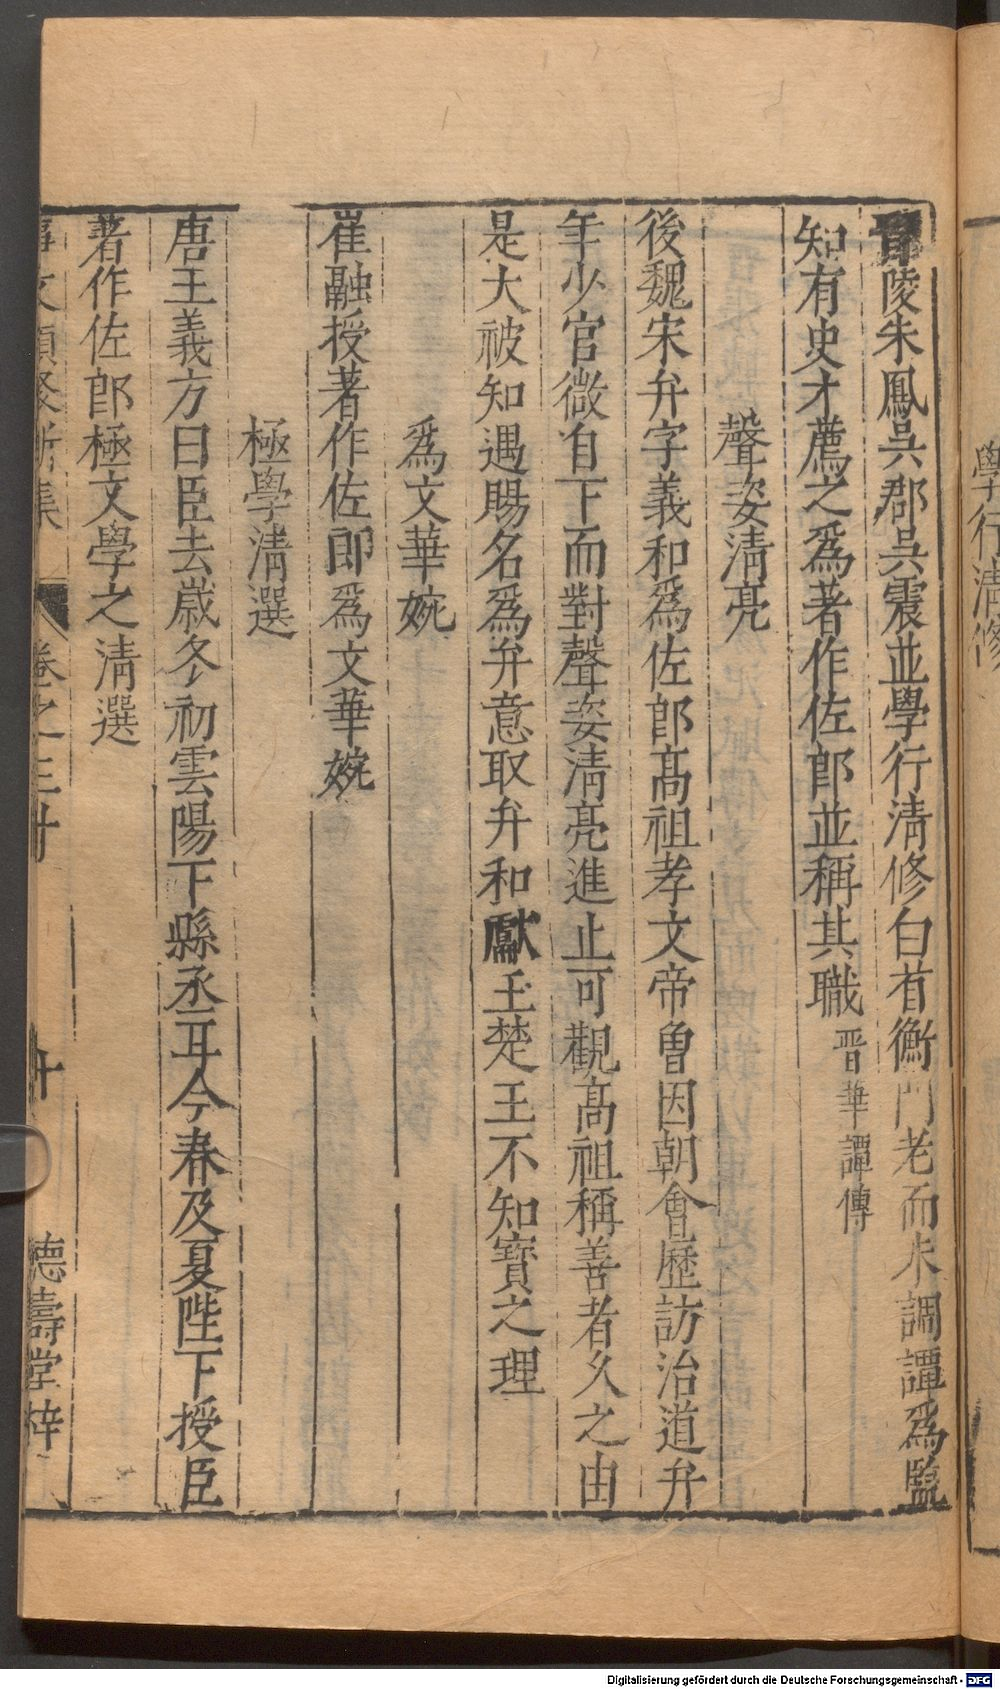 學行清修
晉陵朱鳳吳郡吳震並學行清修白首衡門老而未調譚爲監
知有史才薦之爲著作佐郎並稱其職晉華譚傳
聲姿清亮
後魏宋弁字義和爲佐郎高祖孝文帝曽因朝會歷訪治道弁
年少官微自下而對聲姿清亮進止可觀高祖稱善者久之由
是大被知遇賜名爲弁意取弁和獻玉楚王不知寶之理
爲文華婉
崔融授著作佐郎爲文華婉
極學清選
唐王義方曰臣去歲冬初雲陽下縣丞耳今春及夏陛下授臣
著作佐郎極文學之清選
事文類聚新集 卷之三十 十 德壽堂梓
Digitalisierung gefördert durch die Deutsche Forschungsgemeinschaft - DFG